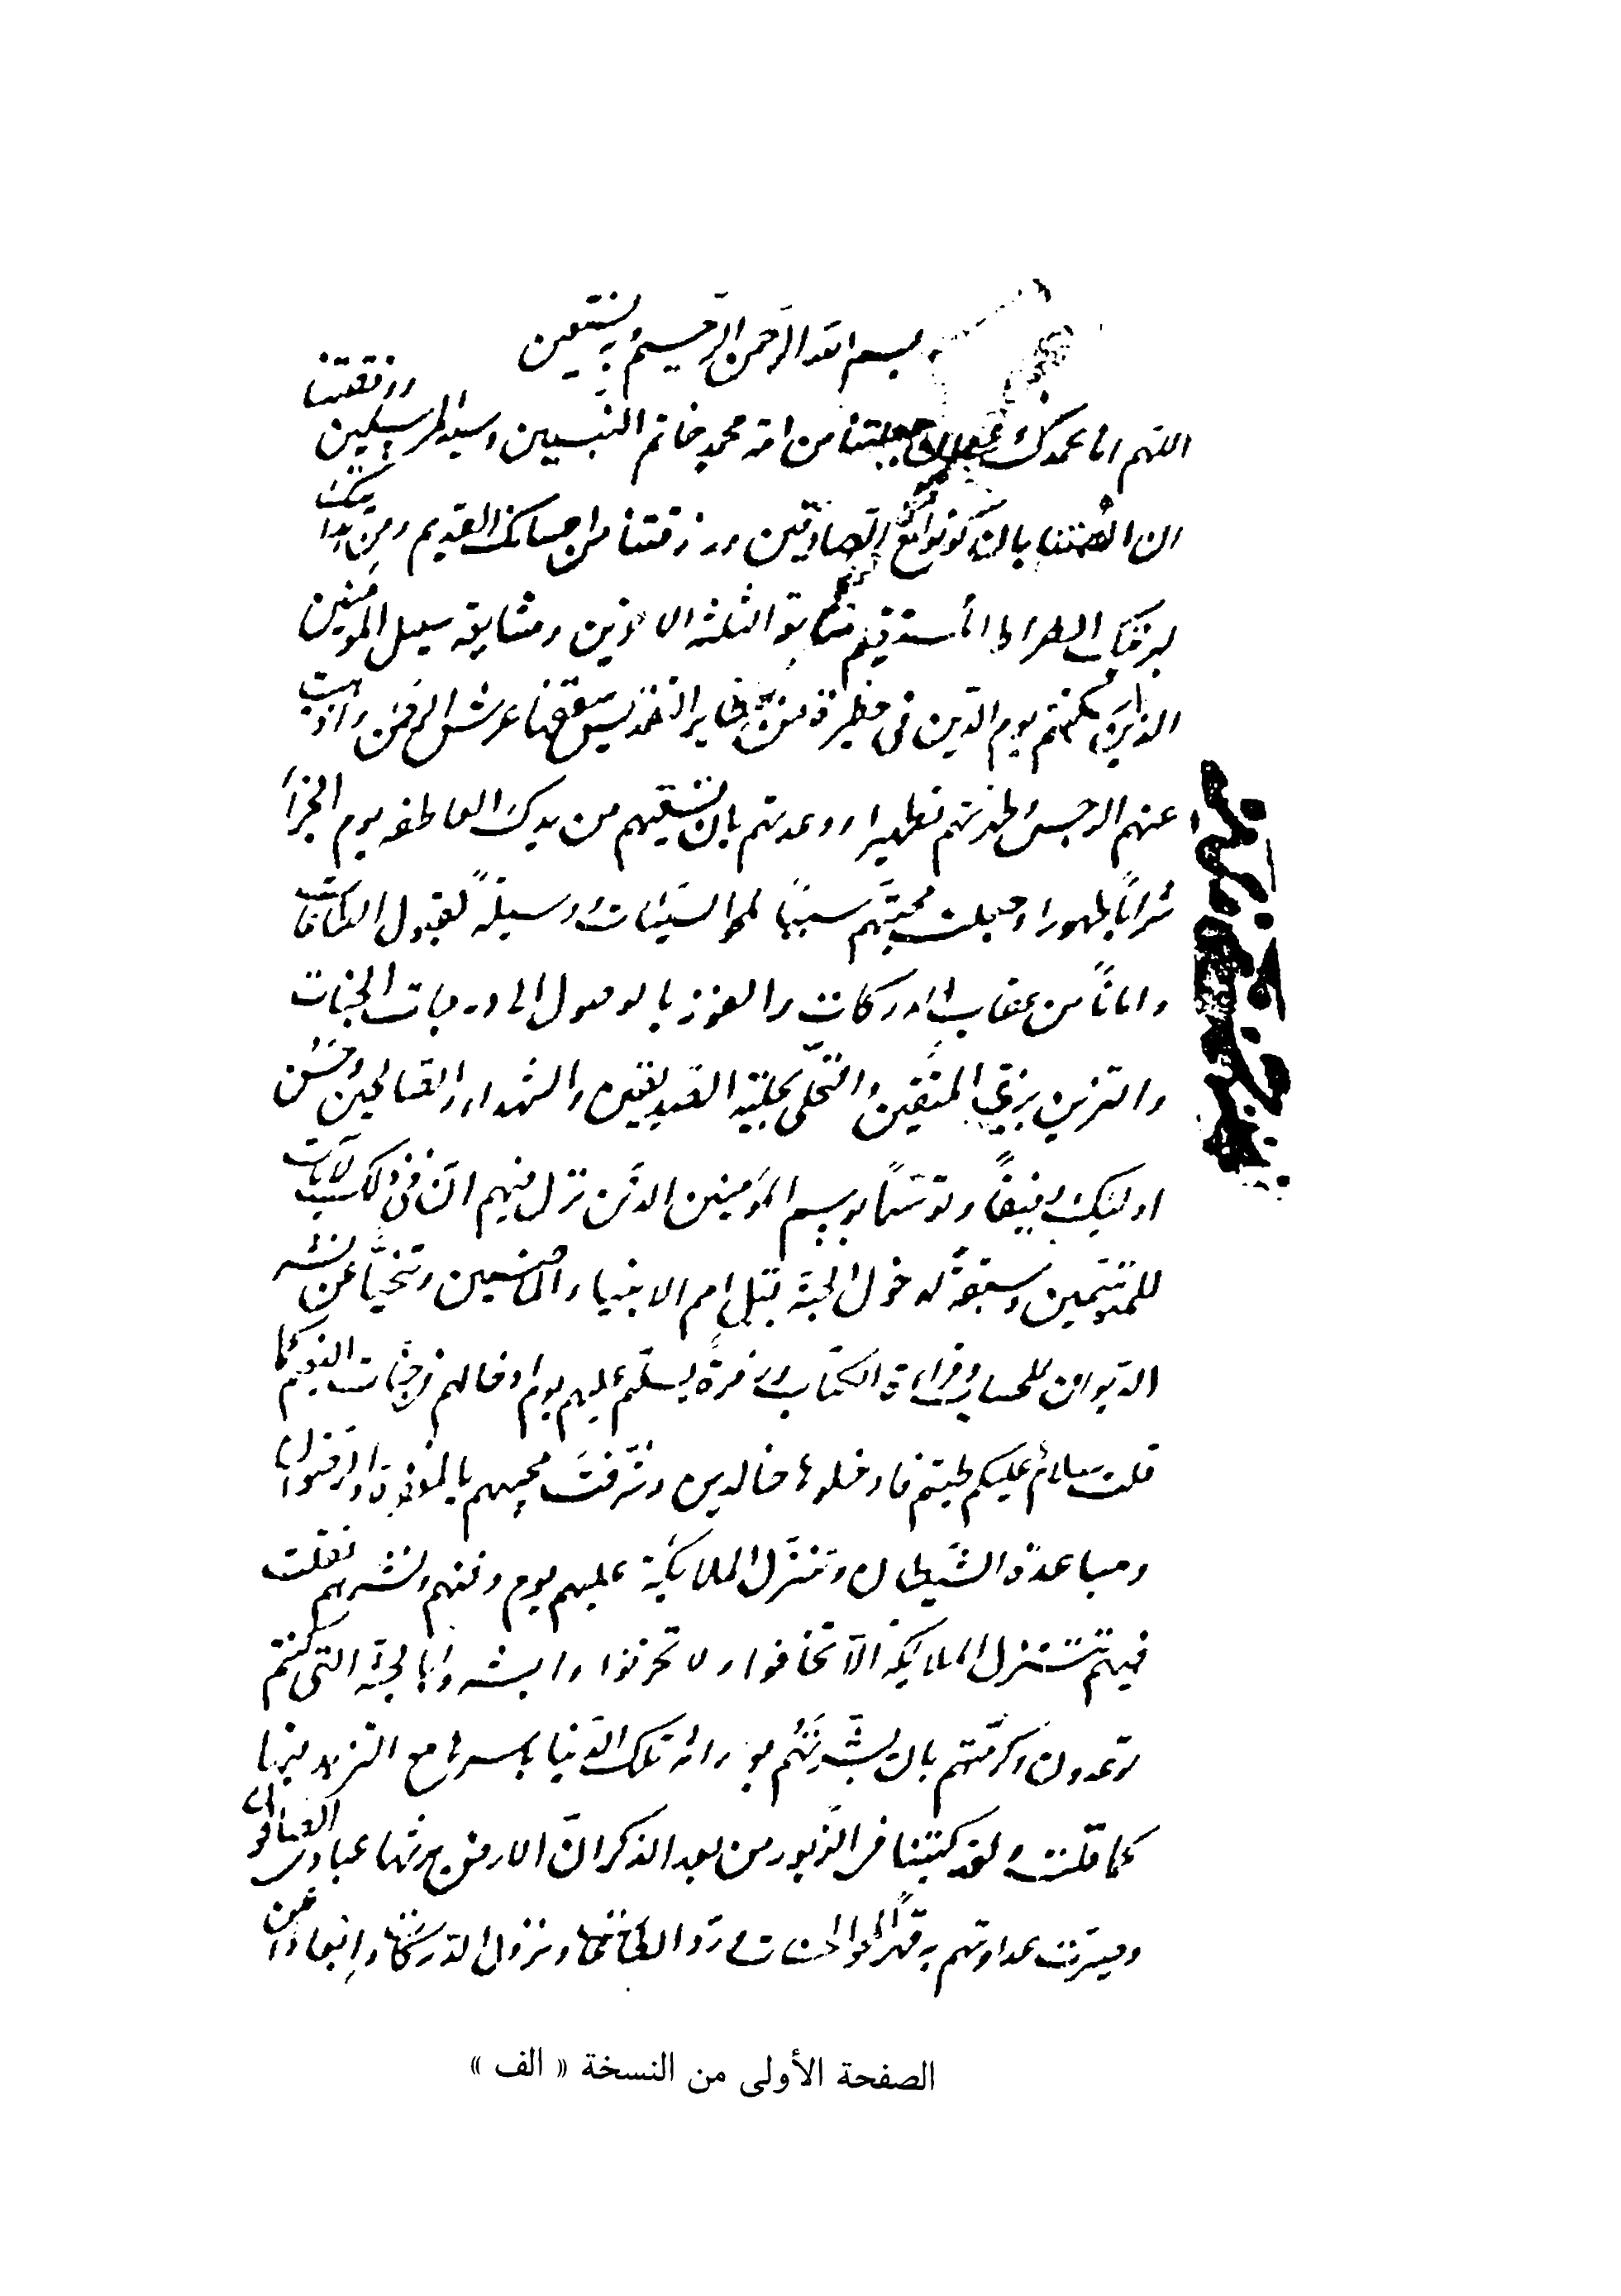 بسم الله الرحمن الرحيم وبه نستعين
اللهم انا نحمدك علی ما جعلتنا من امة محمد خاتم النبيين وسيد المرسلين ووفقتنا
ان الهمتنا بان كونوا مع الصادقين ورزقتنا من احسانك القديم ومن
الصراط المستقيم متابعة الثلثة الاخرين ومشايعة سبيل المؤمنين
الذين يوم الدين فی حظيرة من حظاير القدس سقفها عرش الرحمن واذهبت
عنهم الرجس وطهرتهم تطهيرا ووعدتهم بان تسقيهم من يدك العاطفه يوم الجزأ
شرابًا طهورا وجعلت محبتهم سببًا لمحو السيئات ووسيلةً لقبول الطاعات
وامانًا من عقاب الدركات والفوز بالوصول الی درجات الجنات
والتزين بزی المتقين والتحلی بحلية الصديقين والشهداء والصالحين وحسن
اولئك رفيقًا وتوسّمًا بوسم المؤمنين الذين نزل فيهم انّ فی ذلك لآيات
للمتوسمين وسبقةً لدخول الجنة قبل امم الانبياء والماضيين وتنحّيًا عن نشر
الديوان للحساب وقراءة الكتاب يسلّم عليهم يوم ادخالهم فی جنّات النعيم كما
قلت سلام عليكم طبتم فادخلوها خالدين وشرّفت محبيهم بالمغفرة والرضوان
ومباعدة الشيطان وتنزّل الملايكة عليهم يوم دفنهم ونشرهم فقلت
فيهم تتنزل الملايكة الّا تخافوا ولا تحزنوا وابشروا بالجنة التی كنتم
توعدون وكرّمتهم بان بشّرتهم بوراثة تلك الدّنيا باسرها مع التزهد فيها
كما قلت ولقد كتبنا فی الزّبور من بعد الذكر انّ الارض يرثها عبادی الصالحون
وصيّرت عداوتهم لمحو الحسنات وردّ الطاعات ونزول الدركات عن
الصفحة الأولى من النسخة « الف »